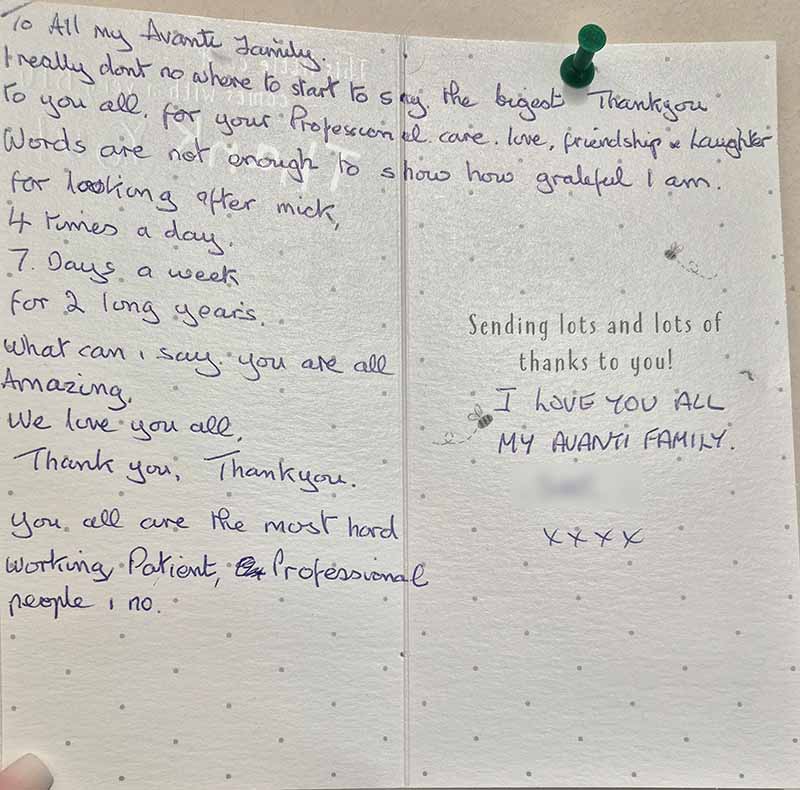 To All my Avanti Family.
I really dont no where to start to say the bigest Thankyou
to you all. for your Professional. care. love, friendship & Laughter
Words are not enough to show how grateful I am.
for looking after mick,
4 times a day.
7. Days a week
for 2 long years.
What can i say. you are all
Amazing.
We love you all.
Thank you, Thankyou.
you all are the most hard
working, Patient, Professional
people i no.
Sending lots and lots of
thanks to you!
I LOVE YOU ALL
MY AVANTI FAMILY.
xxxx